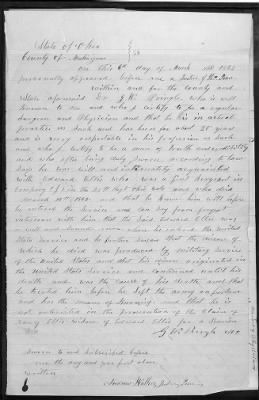 State of Ohio
County of Muskingum } SS
On this 6th day of March AD 1882
personally appeared before me a Justice of the Peace
within and for the County and
State aforesaid Dr J. W. Pringle, who is well
known to me and who I certify to be a regular
Surgeon and Physician and that he is in actual
practice as such and has been for over 25 year
and is very respectable in his profession as such
and who I certify to be a man of truth and
and who after being duly sworn according to law
Says he was well and acquainted
with Edward Ellis who was a first Sergeant in
Company in the Regt Ohio vols and who died
March and that he knew him well before
he entered the Service and can say from
with him that the said Edward Ellis was
a well and sound man when he entered the United
State Service and he further swears that the disease of
which he died was produced by military service
of the United States and that his disease originated in
the United State Service and continued until his
death and was the cause of his death and that
he treated him before he left the army
and has the means of knowing and that he is
not interested in the prosecution of the Claim of
Ellis widow of Edward Ellis for a Pension
J W Pringle MD
Sworn to and Subscribed before
me the day and year first above
written
6